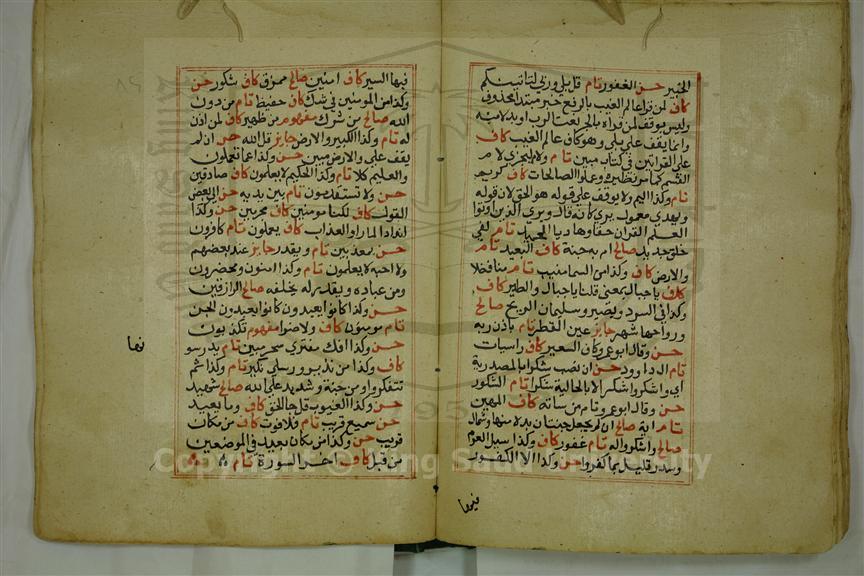 الخبير حسن الغفور تام قل بلى وربي لتاتينكم
كاف لمن قرا عالم الغيب بالرفع خبر مبتدا محذوف
وليس بوقف لمن قراه بالجر نعت لرب او بدلا منه
وانما يقف على بلى وهو كاف عالم الغيب كاف
على القراتين في كتاب مبين تام ولام ليجزي لام
القسم كما مر نظيره وعملوا الصالحات كاف كريم
تام وكذا اليم ولا يوقف على قوله هو الحق لان قوله
ويهدي معمول يرى كانه قال ويرى الذين اوتوا
العلم القران حقا وهاديا الحميد تام لفي
خلق جديد صالح ام به جنة كاف البعيد تام
والارض كاف وكذا من السما منيب تام منا فضلا
كاف يا جبال بمعنى قلنا يا جبال والطير كاف
وكذا في السرد وبصير ولسليمان الريح صالح
ورواحها شهر جايز عين القطر تام باذن ربه
حسن وقال ابو عمرو كاف السعير كاف راسيات
تام ال داوود حسن ان نصب شكرا بالمصدرية
اي واشكروا شكرا لا بالحالية شكرا تام الشكور
حسن وقال ابو عمرو تام منساته كاف المهين
تام اية صالح ان لم يجعل جنتان بدلا منها وشمال
صالح واشكروا له تام غفور كاف وكذا سيل العرم
وسدر قليل بما كفروا حسن وكذا الا الكفور
فيها
فيها السير كاف امنين صالح ممزق كاف شكور حسن
وكذا من المومنين في شك كاف حفيظ تام من دون
الله صالح من شرك مفهوم من ظهير كاف لمن اذن
له تام وكذا الكبير والارض جايز قل الله حسن ان لم
يقف على والارض مبين حسن وكذا عما تعملون
والعليم كلا تام وكذا الحكيم لا يعلمون كاف صادقين
حسن ولا تستقدمون تام بين يديه حسن الى بعض
القول كاف لكنا مومنين كاف مجرمين حسن وكذا
اندادا لما راوا العذاب كاف يعملون تام كافرون
حسن بمعذبين تام ويقدر جايز عند بعضهم
ولا احبه لا يعلمون تام وكذا امنون ومحضرون
ومن عباده ويقدر له يخلفه صالح الرازقين
حسن وكذا كانوا يعبدون كانوا يعبدون الجن
تام مومنون كاف ولا ضرا مفهوم تكذبون
حسن وكذا افك مفترى سحر مبين تام يدرسو
كاف وكذا من نذير ورسلي نكير تام وكذا ثم
تتفكروا ومن جنة وشديد على الله صالح شهيد
حسن وكذا الغيوب قل جا الحق كاف وما يعيد
حسن سميع قريب تام فلا فوت كاف من مكان
قريب حسن وكذا من مكان بعيد في الموضعين
من قبل كاف اخر السورة تام